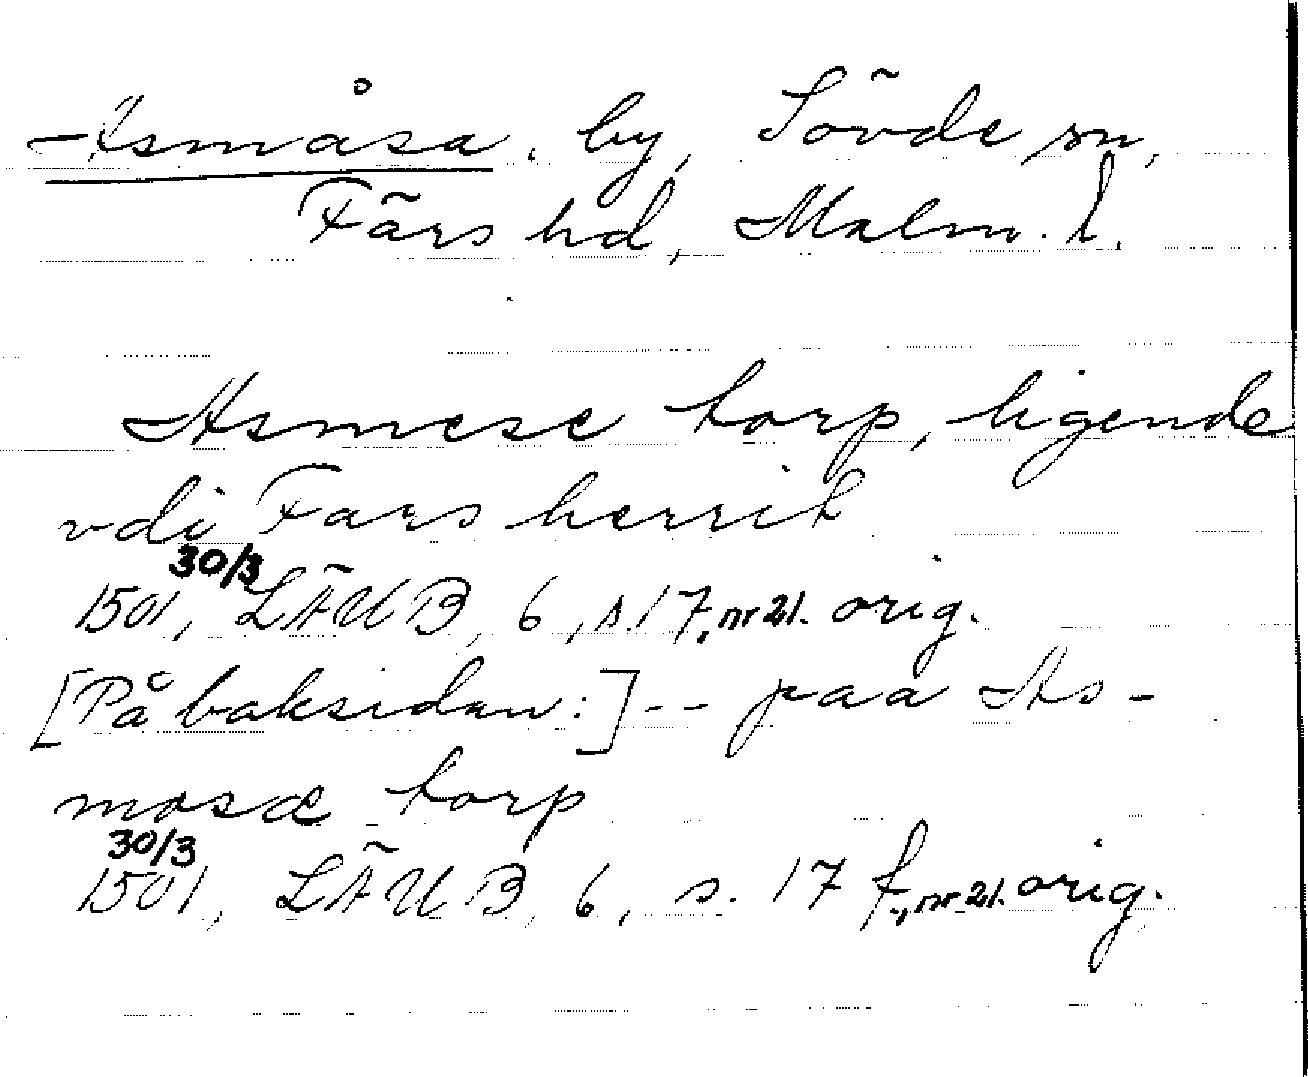 Asmåsa, by, Sövde sn,
Färs hd, Malm. l.
Asmese torp, ligende
vdi Fars herrit
30/3
1501, LÄUB, 6, s. 17, nr 21. orig.
[På baksidan:] -- paa As-
mosæ torp
30/3
1501, LÄUB, 6, s. 17 f., nr 21. orig.